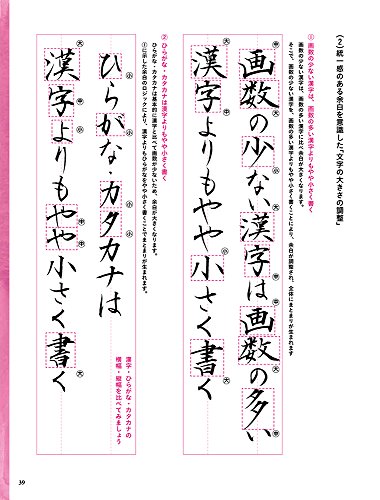 （2）統一感のある余白を意識した「文字の大きさの調整」
① 画数の少ない漢字は、画数の多い漢字よりもやや小さく書く
画数の少ない漢字は、画数の多い漢字に比べ余白が大きくなります。
そこで、画数の少ない漢字を、画数の多い漢字よりもやや小さく書くことにより、余白が調整され、全体にまとまりが生まれます
画数の少ない漢字は画数の多い
漢字よりもやや小さく書く
② ひらがな・カタカナは漢字よりもやや小さく書く
ひらがな・カタカナは基本的に漢字と比べて画数が少ないため、余白が大きくなります。
①に示した余白のロジックにより、漢字よりもひらがなをやや小さく書くことでまとまりが生まれます。
ひらがな・カタカナは
漢字・ひらがな・カタカナの
横幅・縦幅を比べてみましょう
漢字よりもやや小さく書く
39